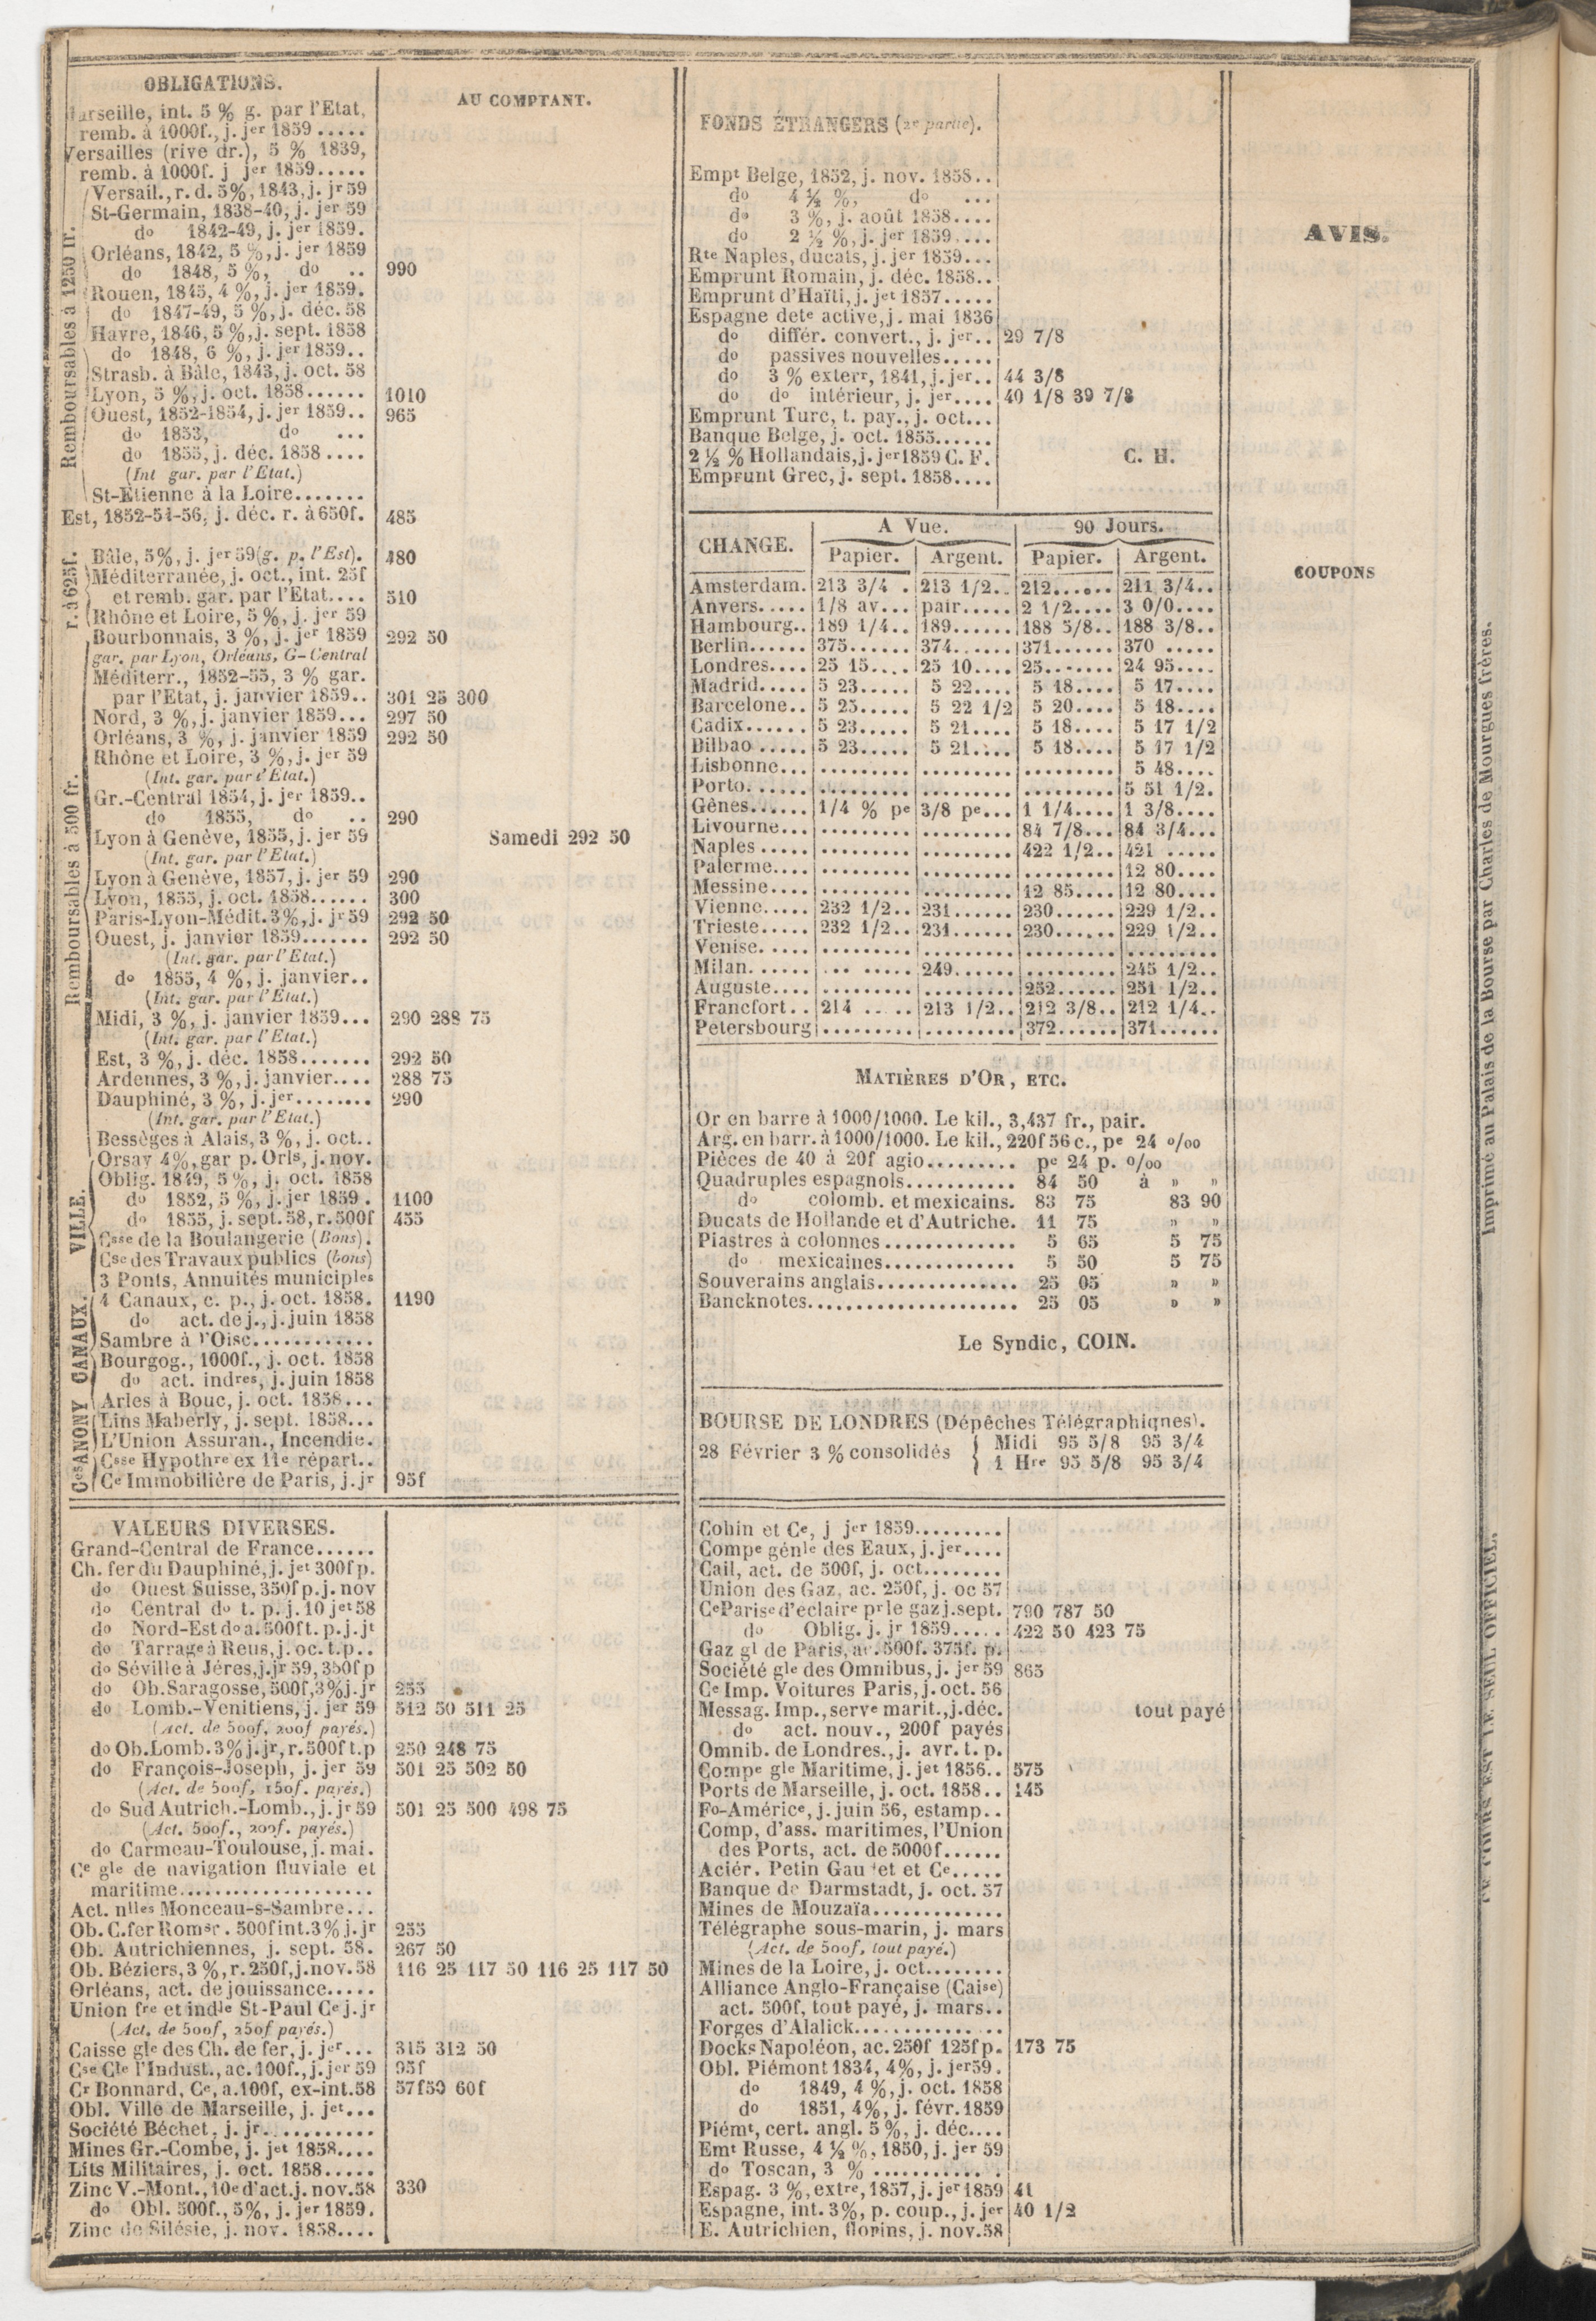 OBLIGATIONS.
AU COMPTANT.
Marseille, int. 5 % g. par l'Etat,
remb. à 1000f., j. jer 1859 .....
Versailles (rive dr.), 5 % 1839,
remb. à 1000f. j jer 1859.....
Remboursables à 1250 fr.
Versail., r. d. 5%, 1843, j. jr 59
St-Germain, 1838-40, j. jer 59
do 1842-49, j. jer 1859.
Orléans, 1842, 5 %, j. jer 1859
do 1848, 5 %, do .. 990
Rouen, 1845, 4 %, j. jer 1859.
do 1847-49, 5 %, j. déc. 58
Havre, 1846, 5 %, j. sept. 1858
do 1848, 6 %, j. jer 1859..
Strasb. à Bâle, 1843, j. oct. 58
Lyon, 5 %, j. oct. 1858...... 1010
Ouest, 1852-1854, j. jer 1859.. 965
do 1853, do ...
do 1855, j. déc. 1858 ....
(Int gar. par l'Etat.)
St-Etienne à la Loire.......
Est, 1852-54-56, j. déc. r. à 650f. 485
r. à 625f.
Bâle, 5%, j. jer 59 (g. p. l'Est). 480
Méditerranée, j. oct., int. 25f
et remb. gar. par l'Etat.... 510
Rhône et Loire, 5 %, j. jer 59
Remboursables à 500 fr.
Bourbonnais, 3 %, j. jer 1859 292 50
gar. par Lyon, Orléans, G-Central
Méditerr., 1852-55, 3 % gar.
par l'Etat, j. janvier 1859.. 301 25 300
Nord, 3 %, j. janvier 1859... 297 50
Orléans, 3 %, j. janvier 1859 292 50
Rhône et Loire, 3 %, j. jer 59
(Int. gar. par l'Etat.)
Gr.-Central 1854, j. jer 1859..
do 1855, do .. 290
Lyon à Genève, 1855, j. jer 59 Samedi 292 50
(Int. gar. par l'Etat.)
Lyon à Genève, 1857, j. jer 59 290
Lyon, 1855, j. oct. 1858...... 300
Paris-Lyon-Médit. 3%, j. jr 59 292 50
Ouest, j. janvier 1859....... 292 50
(Int. gar. par l'Etat.)
do 1855, 4 %, j. janvier..
(Int. gar. par l'Etat.)
Midi, 3 %, j. janvier 1859... 290 288 75
(Int. gar. par l'Etat.)
Est, 3 %, j. déc. 1858....... 292 50
Ardennes, 3 %, j. janvier.... 288 75
Dauphiné, 3 %, j. jer........ 290
(Int. gar. par l'Etat.)
Bessèges à Alais, 3 %, j. oct..
Orsay 4%, gar p. Orls, j. nov.
VILLE.
Oblig. 1849, 5 %, j. oct. 1858
do 1852, 5 %, j. jer 1859 . 1100
do 1855, j. sept. 58, r. 500f 455
Csse de la Boulangerie (Bons).
Cse des Travaux publics (bons)
3 Ponts, Annuités municiples
CANAUX.
4 Canaux, c. p., j. oct. 1858. 1190
do act. de j., j. juin 1858
Sambre à l'Oise............
Bourgog., 1000f., j. oct. 1858
do act. indres, j. juin 1858
Arles à Bouc, j. oct. 1858...
Ces ANONY
Lins Maberly, j. sept. 1858...
L'Union Assuran., Incendie.
Csse Hypothre ex 11e répart..
Ce Immobilière de Paris, j. jr 95f
VALEURS DIVERSES.
Grand-Central de France......
Ch. fer du Dauphiné, j. jet 300f p.
do Ouest Suisse, 350f p. j. nov
do Central do t. p. j. 10 jet 58
do Nord-Est do a. 500f t. p. j. jt
do Tarrage à Reus, j. oc. t. p..
do Séville à Jéres, j. jr 59, 350f p
do Ob. Saragosse, 500f, 3% j. jr 255
do Lomb.-Venitiens, j. jer 59 512 50 511 25
(Act. de 500f, 200f payés.)
do Ob. Lomb. 3% j. jr, r. 500f t. p 250 248 75
do François-Joseph, j. jer 59 501 25 502 50
(Act. de 500f, 150f. payés.)
do Sud Autrich.-Lomb., j. jr 59 501 25 500 498 75
(Act. 500f., 200f. payés.)
do Carmeau-Toulouse, j. mai.
Ce gle de navigation fluviale et
maritime...................
Act. nlles Monceau-s-Sambre...
Ob. C. fer Romsr. 500f int. 3% j. jr 255
Ob. Autrichiennes, j. sept. 58. 267 50
Ob. Béziers, 3 %, r. 250f, j. nov. 58 116 25 117 50 116 25 117 50
Orléans, act. de jouissance.....
Union fre et indle St-Paul Ce j. jr
(Act. de 500f, 250f payés.)
Caisse gle des Ch. de fer, j. jer... 315 312 50
Cse Cle l'Indust., ac. 100f., j. jer 59 95f
Cr Bonnard, Ce, a. 100f, ex-int. 58 57f50 60f
Obl. Ville de Marseille, j. jet...
Société Béchet, j. jr...........
Mines Gr.-Combe, j. jet 1858....
Lits Militaires, j. oct. 1858.....
Zinc V.-Mont., 10e d'act. j. nov. 58 330
do Obl. 500f., 5%, j. jer 1859.
Zinc de Silésie, j. nov. 1858....
FONDS ÉTRANGERS (2e partie).
Empt Belge, 1852, j. nov. 1858..
do 4 ½ %, do ...
do 3 %, j. août 1858....
do 2 ½ %, j. jer 1859....
Rte Naples, ducats, j. jer 1859...
Emprunt Romain, j. déc. 1858..
Emprunt d'Haïti, j. jet 1857.....
Espagne dete active, j. mai 1836
do différ. convert., j. jer.. 29 7/8
do passives nouvelles.....
do 3 % exterr, 1841, j. jer.. 44 3/8
do do intérieur, j. jer.... 40 1/8 39 7/8
Emprunt Turc, t. pay., j. oct...
Banque Belge, j. oct. 1855......
2 ½ % Hollandais, j. jer 1859 C. F. C. H.
Emprunt Grec, j. sept. 1858....
CHANGE. A Vue. 90 Jours.
Papier. Argent. Papier. Argent.
Amsterdam. 213 3/4 . 213 1/2.. 212...... 211 3/4..
Anvers..... 1/8 av... pair..... 2 1/2.... 3 0/0....
Hambourg.. 189 1/4.. 189...... 188 5/8.. 188 3/8..
Berlin..... 375...... 374...... 371...... 370 .....
Londres.... 25 15.... 25 10.... 25....... 24 95....
Madrid..... 5 23..... 5 22.... 5 18.... 5 17....
Barcelone.. 5 25..... 5 22 1/2 5 20.... 5 18....
Cadix...... 5 23..... 5 21.... 5 18.... 5 17 1/2
Bilbao ..... 5 23..... 5 21.... 5 18.... 5 17 1/2
Lisbonne... ......... ......... ......... 5 48....
Porto...... ......... ......... ......... 5 51 1/2.
Gênes...... 1/4 % pe 3/8 pe... 1 1/4.... 1 3/8....
Livourne... ......... ......... 84 7/8... 84 3/4...
Naples ..... ......... ......... 422 1/2.. 421 .....
Palerme.... ......... ......... ......... 12 80....
Messine.... ......... ......... 12 85.... 12 80....
Vienne..... 232 1/2.. 231...... 230...... 229 1/2..
Trieste..... 232 1/2.. 231...... 230...... 229 1/2..
Venise..... ......... ......... ......... .........
Milan...... ... ..... 249...... ......... 245 1/2..
Auguste.... ......... ......... 252...... 251 1/2..
Francfort.. 214 .. .. 213 1/2.. 212 3/8.. 212 1/4..
Petersbourg ......... ......... 372...... 371......
MATIÈRES D'OR, ETC.
Or en barre à 1000/1000. Le kil., 3,437 fr., pair.
Arg. en barr. à 1000/1000. Le kil., 220f 56 c., pe 24 o/oo
Pièces de 40 à 20f agio......... pe 24 p. o/oo
Quadruples espagnols........... 84 50 à » »
do colomb. et mexicains. 83 75 83 90
Ducats de Hollande et d'Autriche. 11 75 » »
Piastres à colonnes............. 5 65 5 75
do mexicaines............. 5 50 5 75
Souverains anglais.............. 25 05 » »
Bancknotes..................... 25 05 » »
Le Syndic, COIN.
BOURSE DE LONDRES (Dépêches Télégraphiques).
28 Février 3 % consolidés
Midi 95 5/8 95 3/4
1 Hre 95 5/8 95 3/4
Cohin et Ce, j jer 1859.........
Compe génle des Eaux, j. jer....
Cail, act. de 500f, j. oct........
Union des Gaz, ac. 250f, j. oc 57
Ce Parise d'éclaire pr le gaz j. sept. 790 787 50
do Oblig. j. jr 1859..... 422 50 423 75
Gaz gl de Paris, ac. 500f. 375f. p.
Société gle des Omnibus, j. jer 59 865
Ce Imp. Voitures Paris, j. oct. 56
Messag. Imp., serve marit., j. déc. tout payé
do act. nouv., 200f payés
Omnib. de Londres., j. avr. t. p.
Compe gle Maritime, j. jet 1856.. 575
Ports de Marseille, j. oct. 1858.. 145
Fo-Américe, j. juin 56, estamp..
Comp, d'ass. maritimes, l'Union
des Ports, act. de 5000f......
Aciér. Petin Gau et et Ce.....
Banque de Darmstadt, j. oct. 57
Mines de Mouzaïa.............
Télégraphe sous-marin, j. mars
(Act. de 500f, tout payé.)
Mines de la Loire, j. oct........
Alliance Anglo-Française (Caise)
act. 500f, tout payé, j. mars..
Forges d'Alalick..............
Docks Napoléon, ac. 250f 125f p. 173 75
Obl. Piémont 1834, 4%, j. jer 59.
do 1849, 4 %, j. oct. 1858
do 1851, 4%, j. févr. 1859
Piémt, cert. angl. 5 %, j. déc....
Emt Russe, 4 ½ %, 1850, j. jer 59
do Toscan, 3 % ............
Espag. 3 %, extre, 1857, j. jer 1859 41
Espagne, int. 3%, p. coup., j. jer 40 1/2
E. Autrichien, florins, j. nov. 58
AVIS.
COUPONS
Imprimé au Palais de la Bourse par Charles de Mourgues frères.
CE COURS EST LE SEUL OFFICIEL.